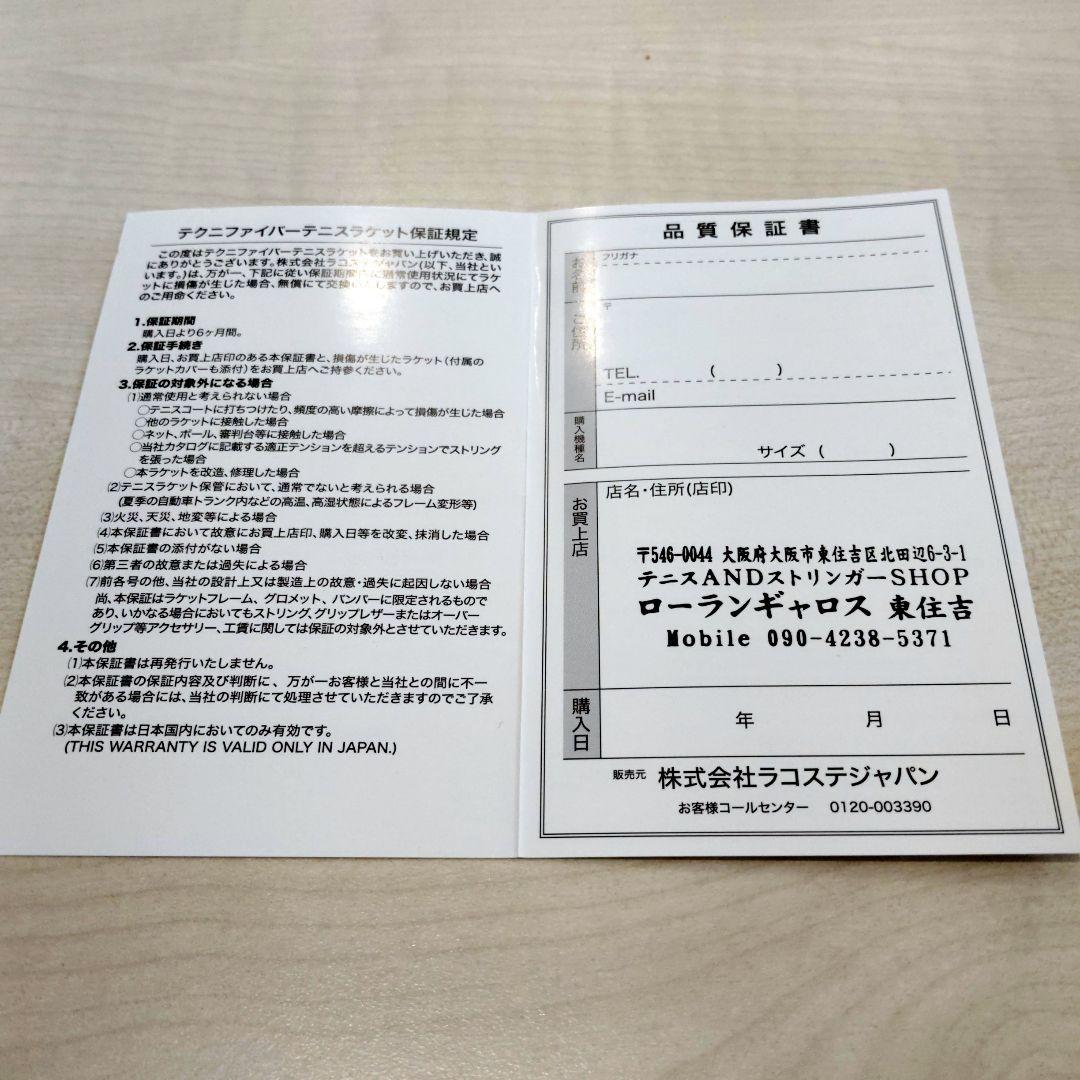 テクニファイバーテニスラケット保証規定
この度はテクニファイバーテニスラケットをお買い上げいただき、誠
にありがとうございます。株式会社ラコステジャパン(以下、当社とい
います。)は、万が一、下記に従い保証期間内に通常使用状況にてラケ
ットに損傷が生じた場合、無償にて交換いたしますので、お買上店へ
のご用命ください。
1.保証期間
購入日より6ヶ月間。
2.保証手続き
購入日、お買上店印のある本保証書と、損傷が生じたラケット(付属の
ラケットカバーも添付)をお買上店へご持参ください。
3.保証の対象外になる場合
(1)通常使用と考えられない場合
○テニスコートに打ちつけたり、頻度の高い摩擦によって損傷が生じた場合
○他のラケットに接触した場合
○ネット、ポール、審判台等に接触した場合
○当社カタログに記載する適正テンションを超えるテンションでストリング
を張った場合
○本ラケットを改造、修理した場合
(2)テニスラケット保管において、通常でないと考えられる場合
(夏季の自動車トランク内などの高温、高湿状態によるフレーム変形等)
(3)火災、天災、地変等による場合
(4)本保証書において故意にお買上店印、購入日等を改変、抹消した場合
(5)本保証書の添付がない場合
(6)第三者の故意または過失による場合
(7)前各号の他、当社の設計上又は製造上の故意・過失に起因しない場合
尚、本保証はラケットフレーム、グロメット、バンパーに限定されるもので
あり、いかなる場合においてもストリング、グリップレザーまたはオーバー
グリップ等アクセサリー、工賃に関しては保証の対象外とさせていただきます。
4.その他
(1)本保証書は再発行いたしません。
(2)本保証書の保証内容及び判断に、万が一お客様と当社との間に不一
致がある場合には、当社の判断にて処理させていただきますのでご了承
ください。
(3)本保証書は日本国内においてのみ有効です。
(THIS WARRANTY IS VALID ONLY IN JAPAN.)
品質保証書
お名前
フリガナ
ご住所
〒
TEL. ( )
E-mail
購入機種名
サイズ ( )
お買上店
店名・住所(店印)
〒546-0044 大阪府大阪市東住吉区北田辺6-3-1
テニスANDストリンガーSHOP
ローランギャロス 東住吉
Mobile 090-4238-5371
購入日
年 月 日
販売元 株式会社ラコステジャパン
お客様コールセンター 0120-003390